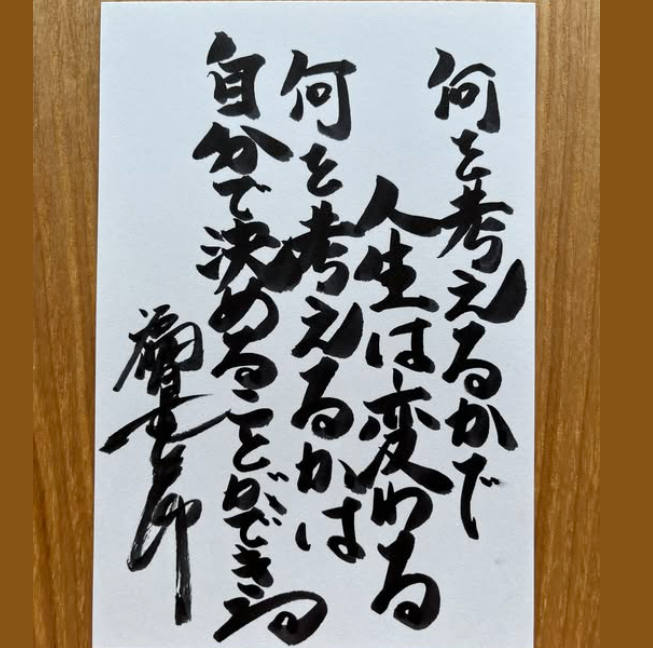 何を考えるかで
人生は変わる
何を考えるかは
自分で決めることができる